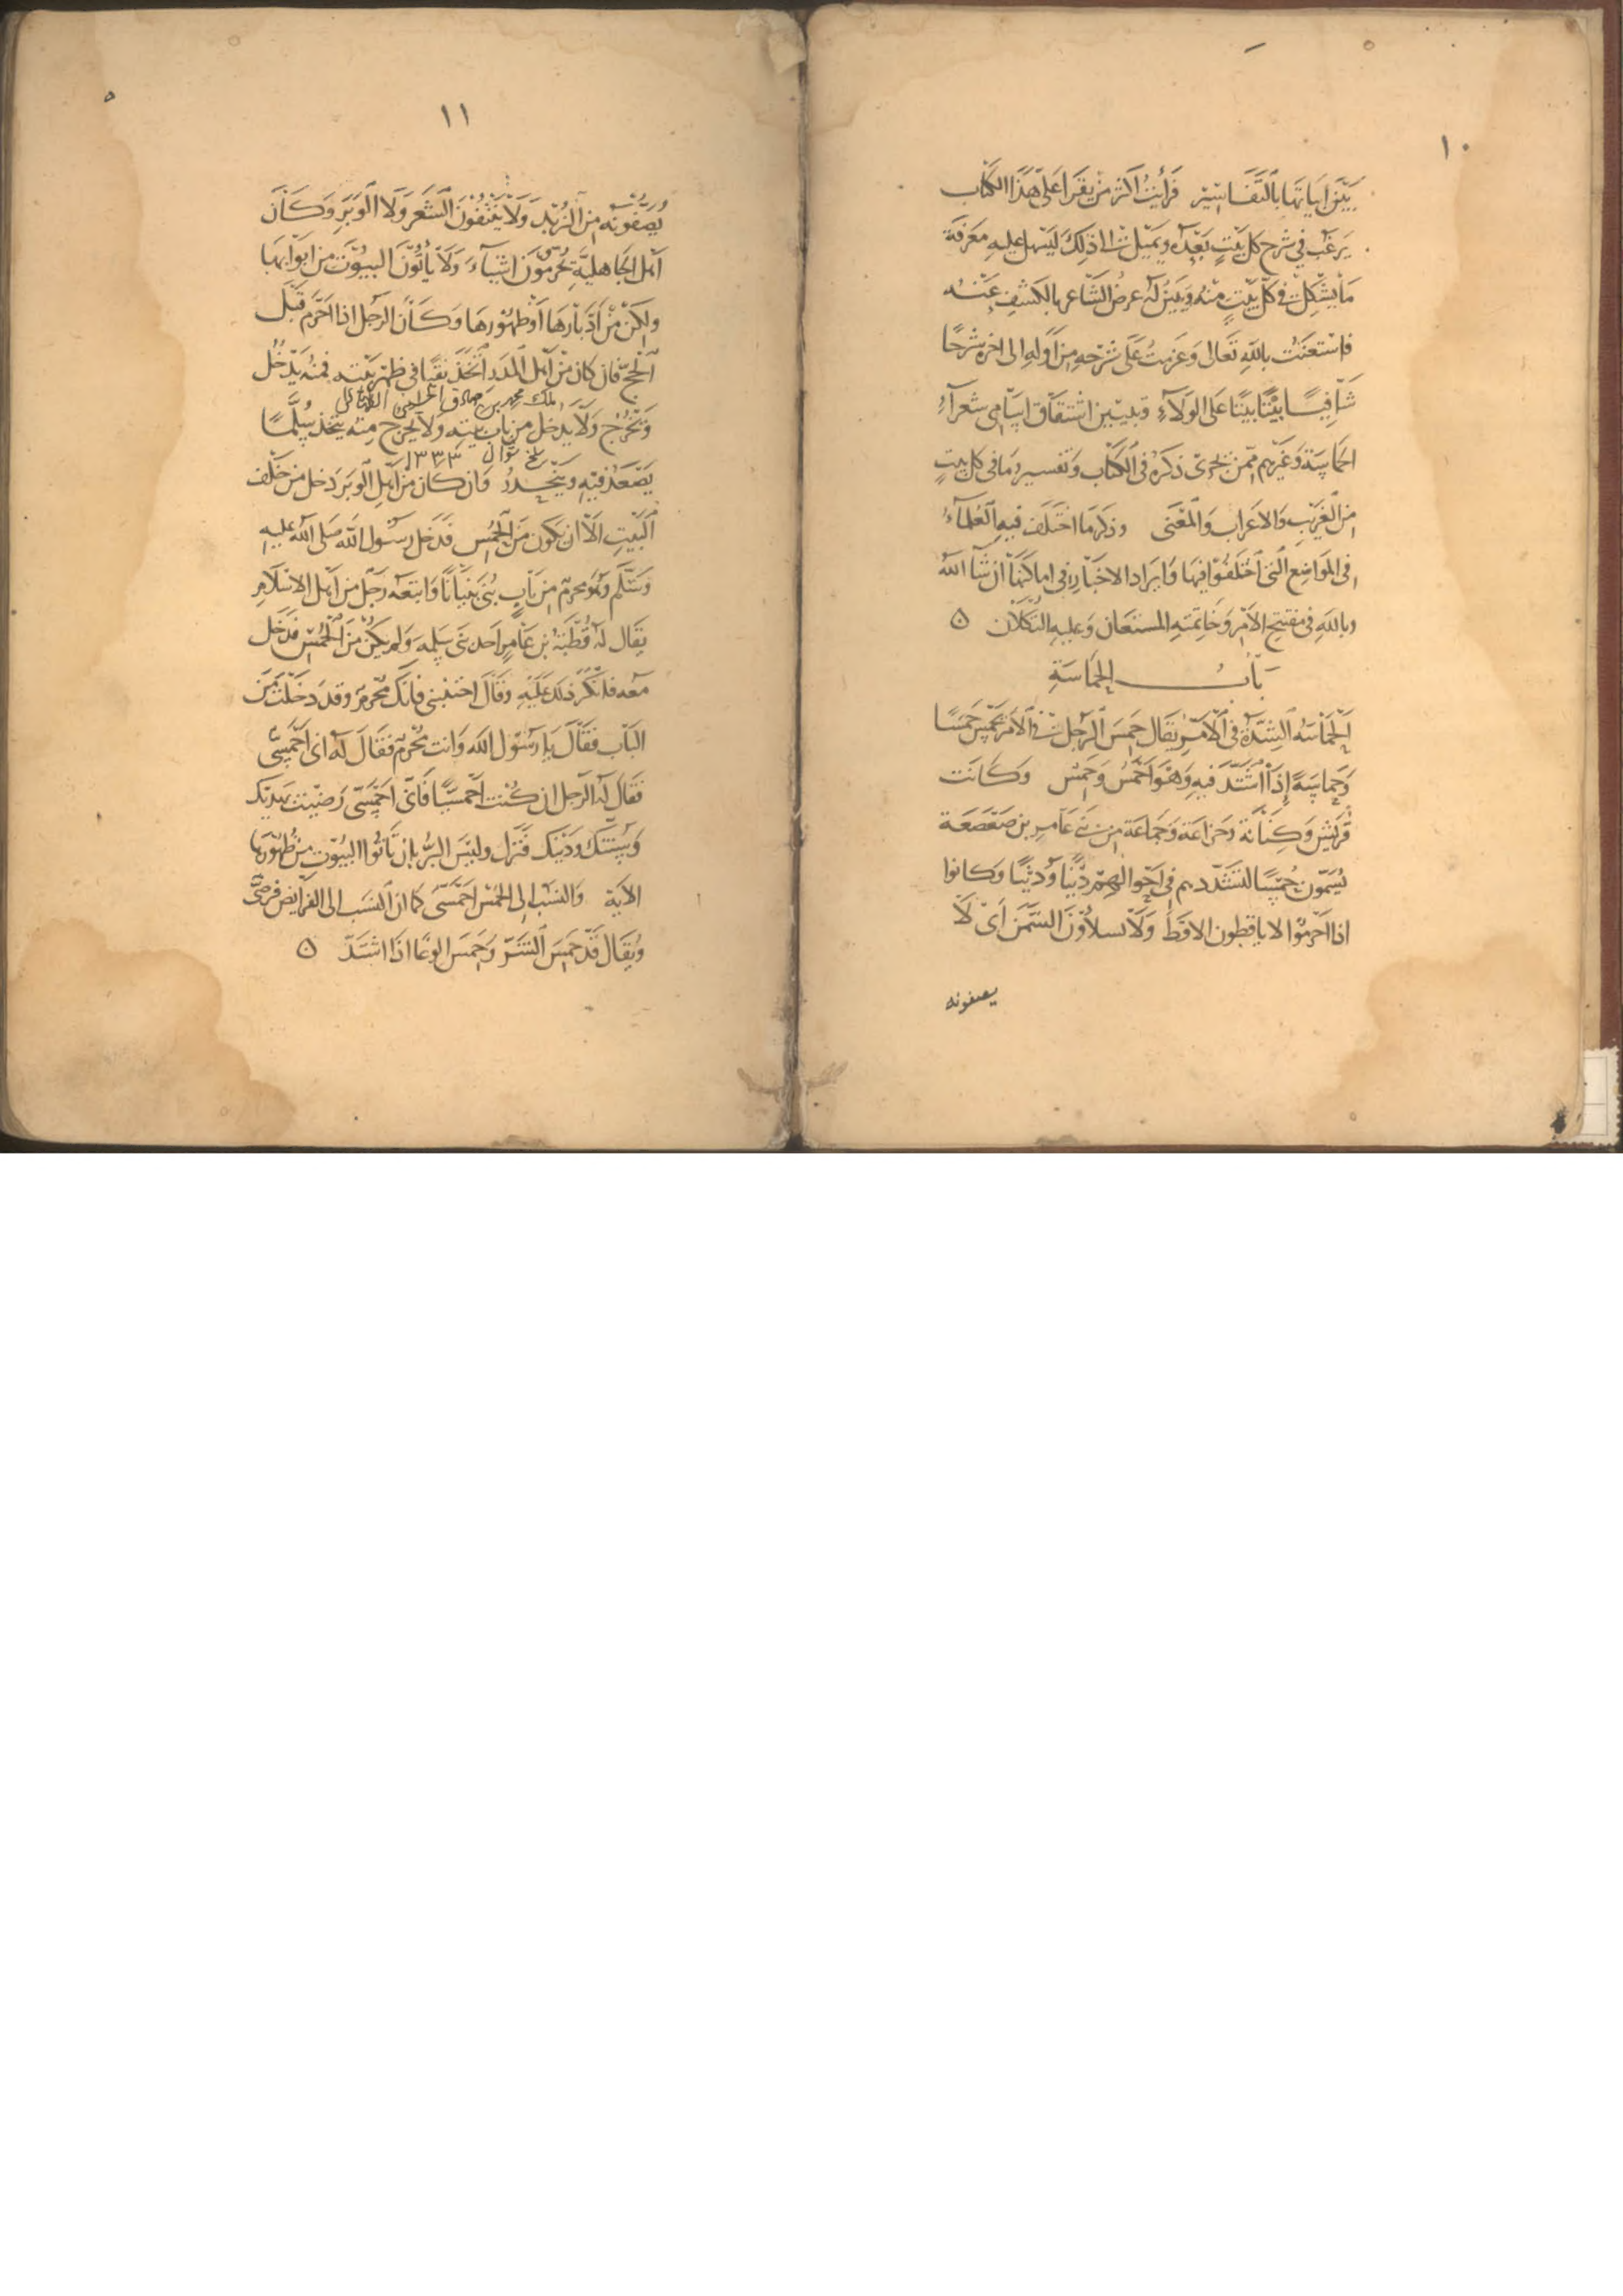 ١٠
بَيّنَ ابَيَاتهَا بالتَّفَاسِيْر فَرَأيتُ اكثر مَنْ يَقرَا عَلى هَذا الكتاب
يَرغَب في شرح كل بَيتٍ بَعْدَه وَيميل الى ذلِكَ ليَسْهل عليهِ مَعَرفَة
مَا يشكل في كل بيَتٍ مِنْهُ وَيَبيَنُ لهُ غرضُ الشاعر بالكشف عَنْه
فاستعَنتُ بالله تعَالى وَعَزمتُ عَلى شَرْحهِ مِن اَولهِ الى اخرهِ شرحًا
شَافِيًا بَيْتًا بيتًا عَلى الوَلآءِ وتبيين اشتقاق اسَامى شعرآءِ
الحمَاسَة وَغيرهم ممّن جَرى ذكرهُ في الكتاب وَتفسير مَا في كل بيتٍ
من الغَريب وَالاعراب وَالمعَنى وذكر مَا اختَلف فيهِ العُلمآءُ
في المَواضِع التى اختلفوُا فيهَا وَايرَاد الاخبَار في اماكنهَا ان شآ الله
وبالله في مفتتح الامْر وَخاتمتهِ المستَعَان وَعليهِ التُكلان ن
بَابُ الحَمَاسَةِ
الحَمَاسَة الشِدّة في الاَمْر يقَال حَمِسَ الرجل في الامر يَحمَسُ حَمَسًا
وَحماسَةً إذا اشتَدّ فيهِ وَهوَ احمَسُ وَحَمِسٌ وَكَانَت
قُرَيْش وَكِنَانَة وَخزاعَة وَجَماعَة من بَني عَامِر بن صَعْصَعَة
يُسَمّون حُمْسًا لتشَدّدهم في اَحْوالهِمْ دُنْيَا وَدِيْنًا وَكانوا
اذا احرَمُوا لا ياقطون الاقطَ وَلا يسلأوُنَ السَّمْن اَىْ لَا
يصفونه
١١
يُصَفّونه مِنَ الزُبْدِ وَلا يَنْتفُوْنَ الشَعَر وَلا الوَبَر وَكَانَ
اَهل الجَاهليَّةِ يُحَرّمُوْنَ اشيَاءَ وَلا يَأتُوْنَ البيوُت من ابوَابهَا
ولكنْ مِنْ اَدْبَارهَا اَوْ ظهُوْرهَا وَكَان الرَجل اذا احرَم قبَل
الحَجّ فان كان مِنْ اَهل المدَر اتَخَذ نقبًا في ظهر بَيْتِهِ فمِنْهُ يَدْخُل
ملك محمد بن صادق
وَيخْرُج وَلا يَدخل من باب بَيتهِ وَلا يخرج مِنْه يتخذ سُلَّمًا
شوال ١٣٣٣
يَصْعَدُ فيْهِ وَينْحِدرُ وَان كان مِنْ اَهلِ الوَبَر دَخل من خلف
البَيْتِ الّا ان يكون مَنَ الحُمْسِ فَدَخل رَسُول الله صَلى الله عليهِ
وَسَلّم وَهوَ محرم من بَابٍ بُنىَ بَنيَانًا وَاتبعَه رَجُل من اَهل الاسْلَامِ
يقَال له قُطْبَة بن عَامِرٍ احد بنى سَلِمه وَلم يكنْ منَ الحُمْسِ فدَخل
مَعه فانكَر ذَلك عَلَيْهِ وَقَالَ اجتنبنى فاِنكَ مُحْرِم وَقد دَخلتَ مِنَ
البَاب فقَال يَا رَسُوْل الله وَانت مُحْرِم فقَالَ لَه انى احمَسِىٌّ
فقَال لَه الرجل ان كنْت اَحْمَسيًّا فَانى احمَسىّ رَضيْت بهديكَ
وَسُنّتك وَدْينك فَنَزل وليْسَ البرُّ بان تَأتُوا البيُوْت مِنْ ظُهُوْرهَا
الاية وَالنسَب الى الحُمْسِ احْمَسىّ كمَا ان النسَب الى الفرايض فَرضىّ
وَيُقَال قَدْ حَمِسَ الشَّرّ وَحَمِسَ الوَغَا اذَا اشتَدّ ن